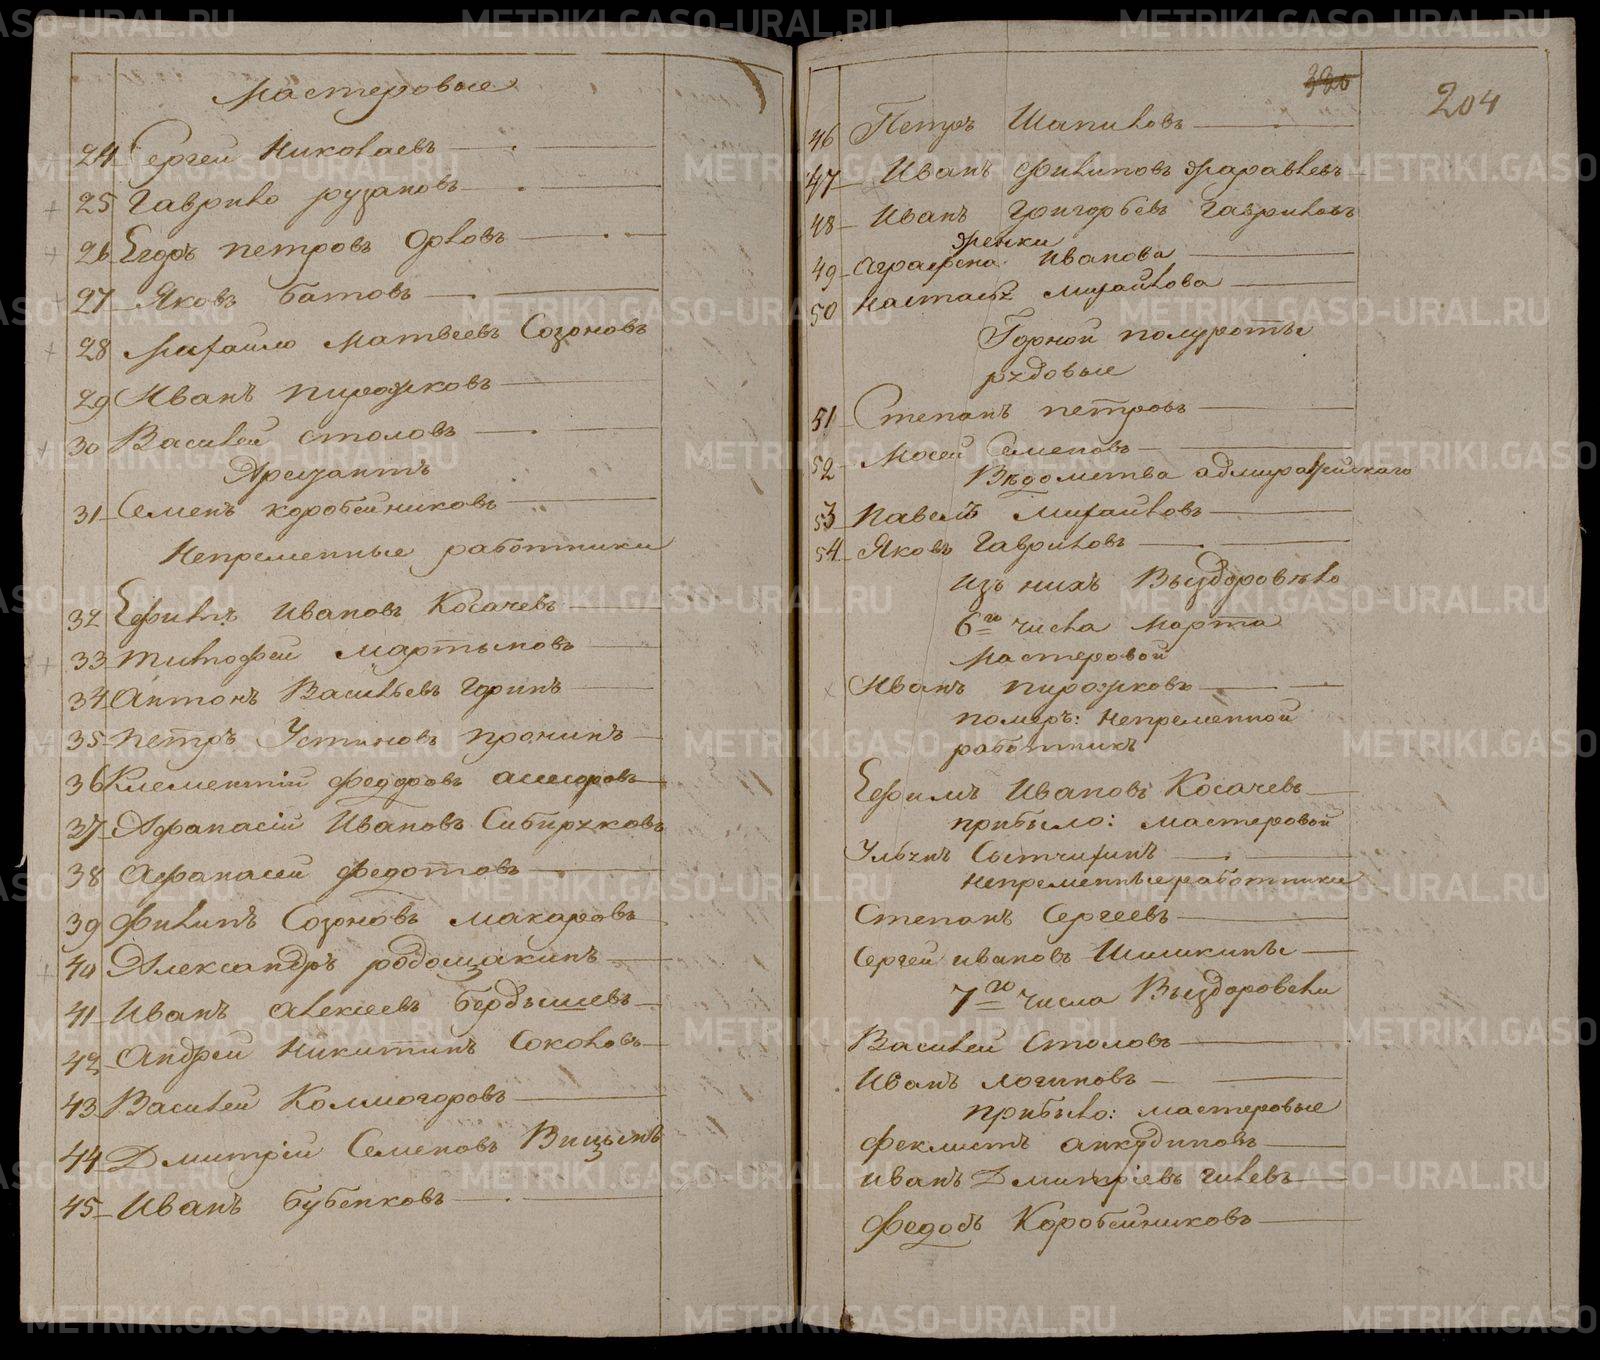 Мастеровые
24 Сергей Николаевъ
25 Гаврило рузановъ
26 Егоръ петровъ Орловъ
27 Яковъ батовъ
28 Михайло Матвеевъ Созоновъ
29 Иванъ пирожковъ
30 Василей столовъ
Арезантъ
31 Семенъ коробейниковъ
Непременные работники
32 Ефимъ Ивановъ Косачевъ
33 тимофей мартыновъ
34 Антонъ Васильевъ Горинъ
35 петръ Устиновъ пронинъ
36 Клементий федоровъ
37 Афанасий Ивановъ Сибиряковъ
38 Афанасей федотовъ
39 филипъ Созоновъ макаровъ
40 Александръ
41 Иванъ алексеевъ бердышевъ
42 Андрей Никитинъ Соколовъ
43 Василей Колмогоровъ
44 Дмитрий Семеновъ Вицынъ
45 Иванъ бубенковъ
330
204
46 Петръ Шапиловъ
47 Иванъ филиповъ Жаравлевъ
48 Иванъ Григорьевъ Гавриловъ
Женки
49 аграфена Иванова
50 Настасья михайлова
Горной полуроты
рядовые
51 Степанъ петровъ
52 Мосей Семеновъ
Ведомства адмиралтейскаго
53 павелъ михайловъ
54 Яковъ Гавриловъ
Изъ нихъ Выздоровело
6го числа марта
мастеровой
Иванъ пирожковъ
померъ: непременной
работникъ
Ефимъ Ивановъ Косачевъ
прибыло: мастеровой
Ульянъ
непременные работники
Степанъ Сергеевъ
Сергей ивановъ Шишкинъ
7го числа Выздоровели
Василей столовъ
Иванъ логиновъ
прибыло: мастеровые
феклистъ анкудиновъ
иванъ Дмитриевъ гилевъ
федоръ Коробейниковъ
METRIKI.GASO-URAL.RU